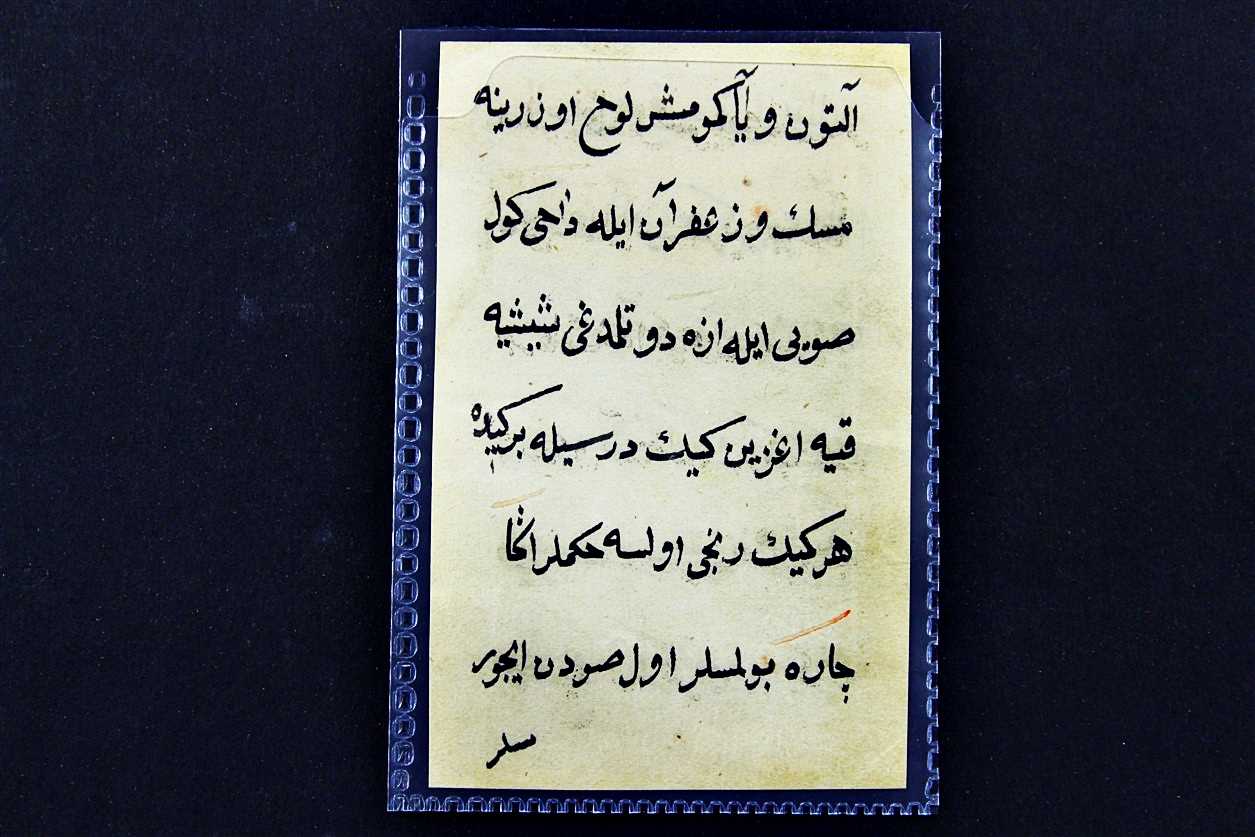 آلتون و یا کمومش لوح اوزرینه
مسك و زعفران ایله داخی کول
صویی ایله ازه دوتلمدغی شیشیه
قیه اغزین کیك درسیله برکیده
هر کیك رنجی اولسه حکملر اکا
چاره بولمسلر اول صودن ایجور
سلر